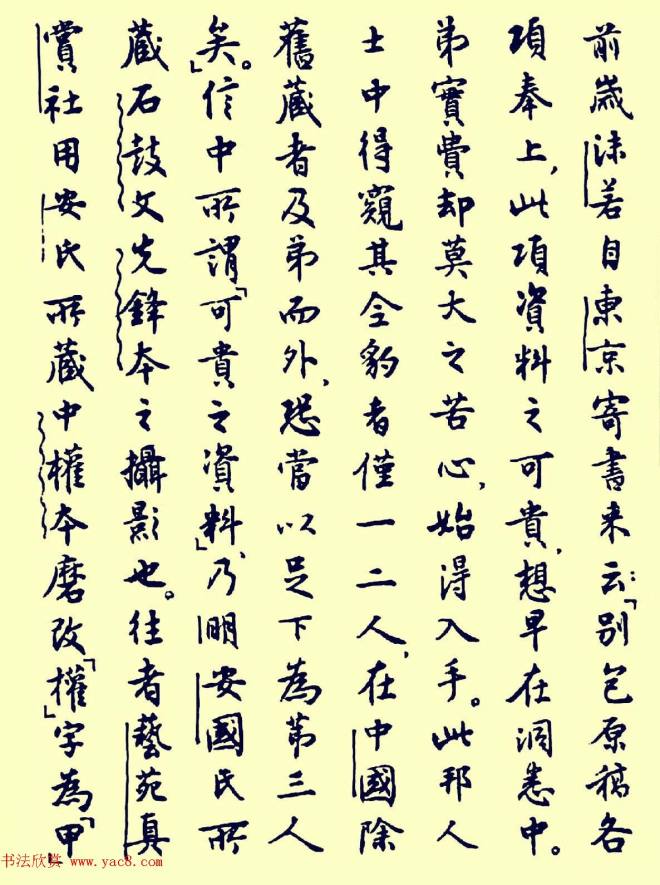 前歲沫若自東京寄書来云:「別包原稿各
項奉上,此項資料之可貴,想早在洞悉中。
弟實費却莫大之苦心,始淂入手。此邦人
士中得窺其全豹者僅一二人,在中國除
舊藏者及弟而外,恐當以足下為第三人
矣」。信中所謂「可貴之資料」,乃明安國氏所
藏石鼓文先鋒本之攝影也。往者藝苑真
賞社用安氏所藏中權本磨改「權」字為「甲」
书法欣赏 www.yac8.com